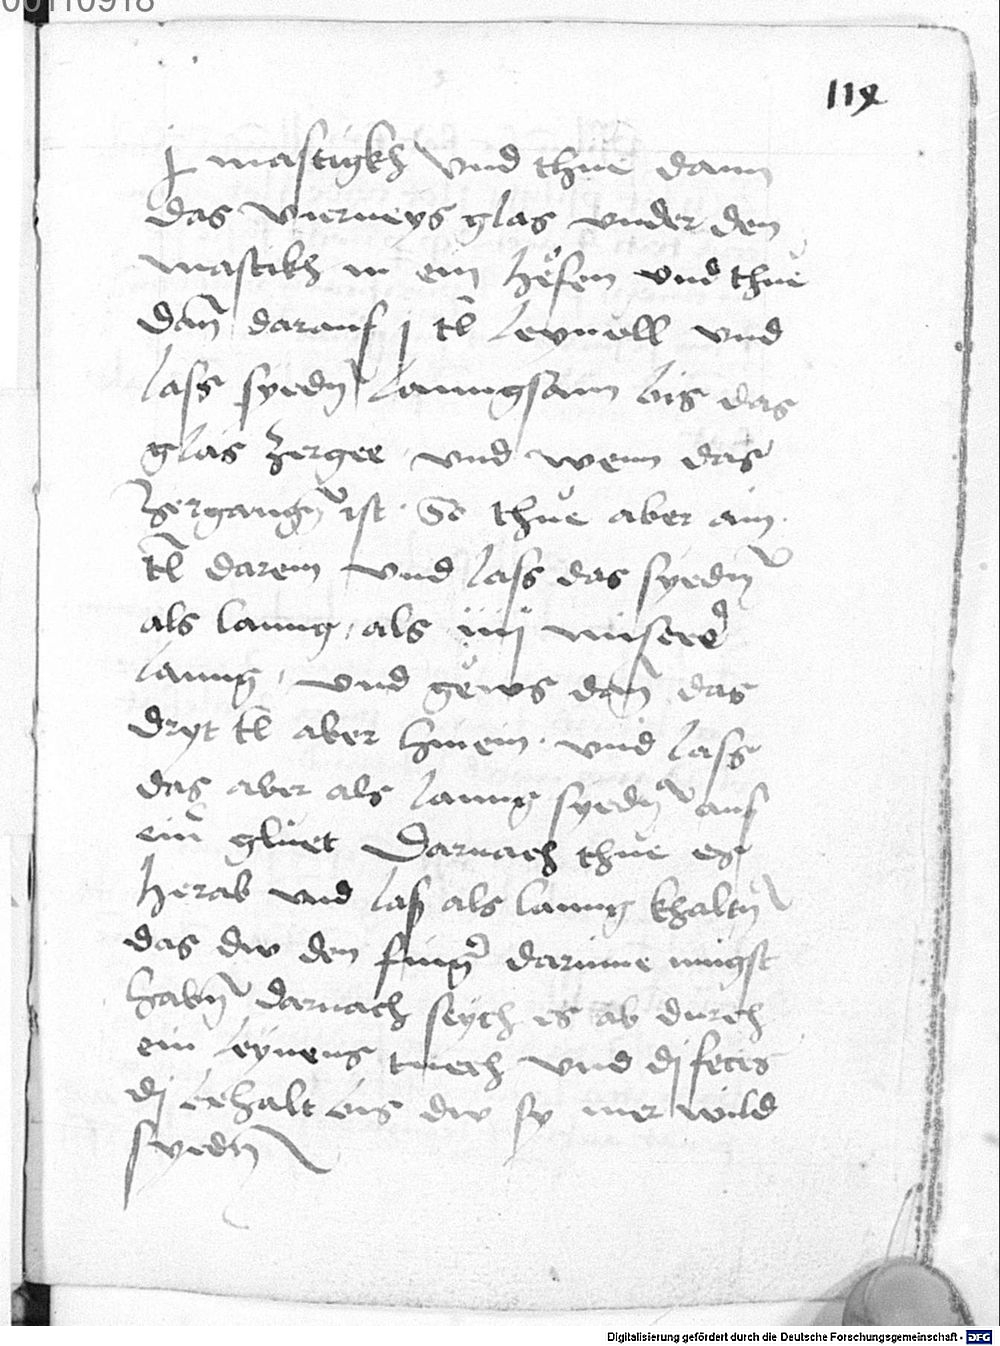 00110918
119
j mastigkh vnd thue dann
das vierneys glas vnder den
mastikh in ein hefen vnd thue
dan̄ darauf j tl leynell vnd
lass syedn̄ lanngsam bis das
glas zergee vnd wenn das
zergangn̄ ist · So thue aber ain
tl darein vnd lass das syedn̄
als lanng als iiij miserere
lanng / vnd gews dan̄ das
dryt tl aber hinein · vnd lass
das aber als lanng syedn̄ auf
ein̄ gluet Darnach thue es
herab vnd las als lanng khaltn̄
das dw den finḡer darinne mugst
habn̄ darnach seych es ab durch
ein leynens tuech vnd dj feces
dj behalt bis dw sy mer wild
syedn̄
Digitalisierung gefördert durch die Deutsche Forschungsgemeinschaft - DFG